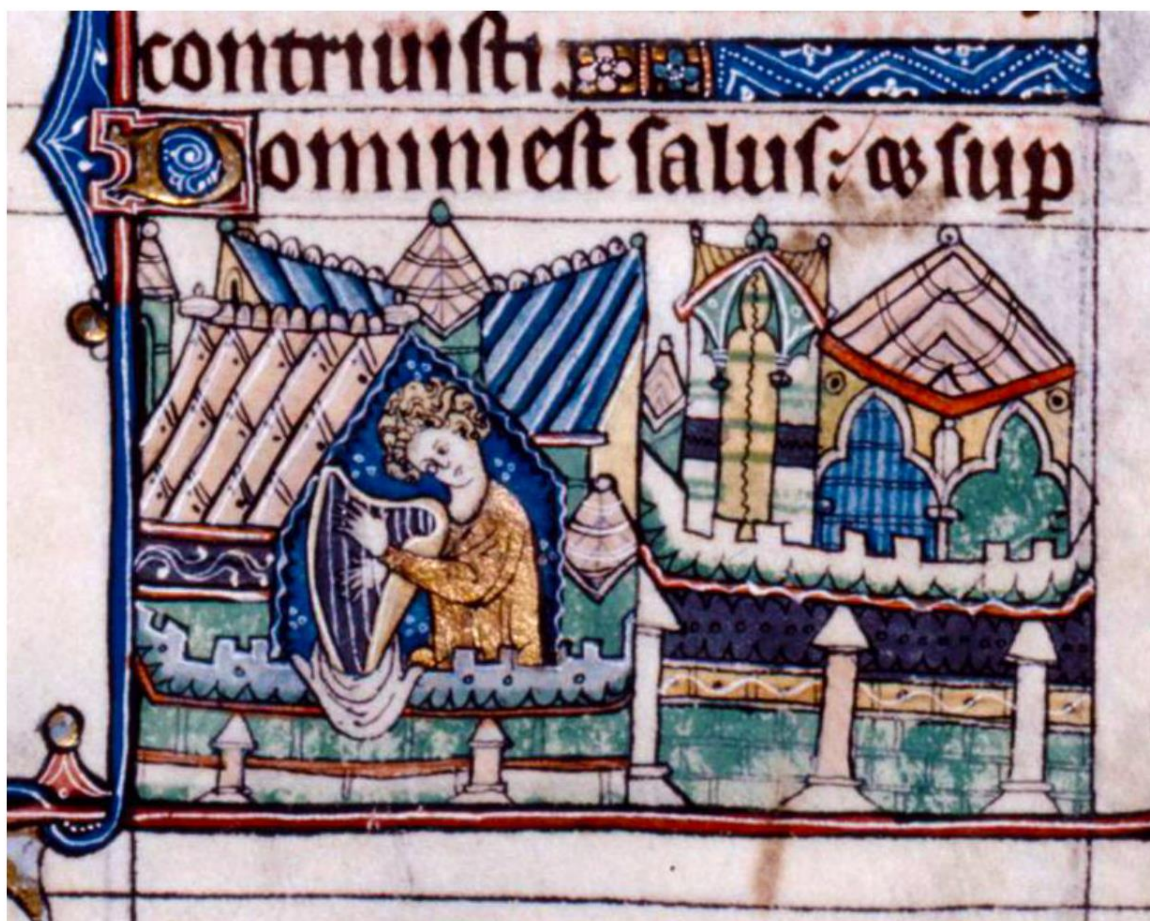 contriuisti.
Domini est salus: & sup